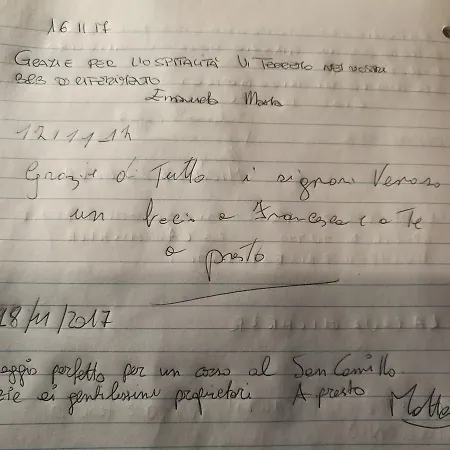 16 11 17
GRAZIE PER L'OSPITALITÀ VI TERREMO NEI VOSTRI
B&B DI RIFERIMENTO
Emanuele Marta
12/11/17
Grazie di Tutto i signori Veroso
un bacio a Francesca e a Te
a presto
18/11/2017
aggio perfetto per un corso al San Camillo.
zie ai gentilissimi proprietari A presto